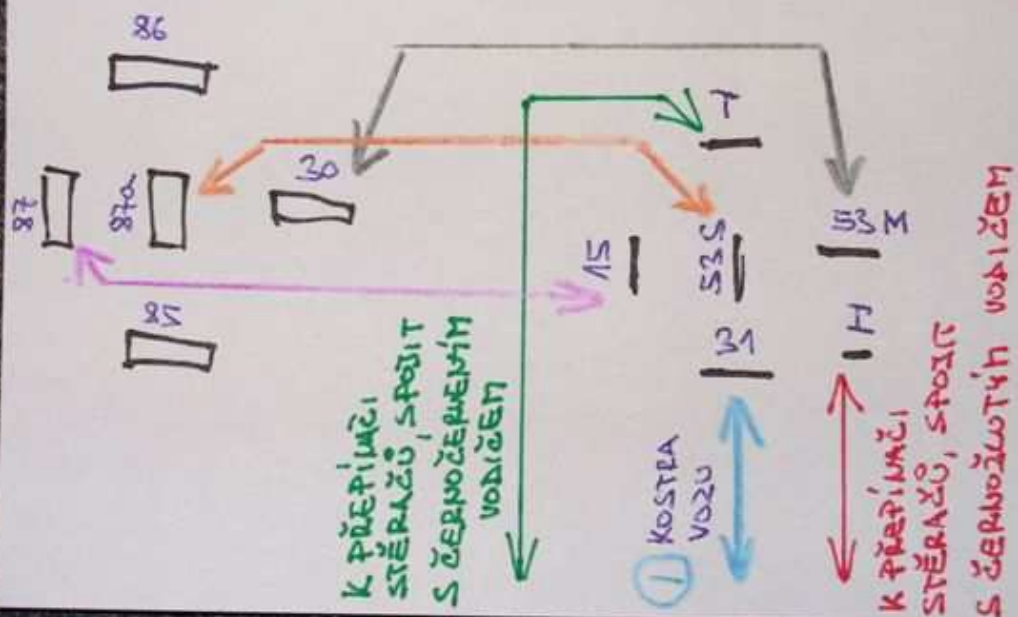 86
87
87a
30
85
T
15
53S
53M
31
H
K PŘEPÍNAČI
STĚRAČŮ, SPOJIT
S ČERNOČERVENÝM
VODIČEM
1
KOSTRA
VOZU
K PŘEPÍNAČI
STĚRAČŮ, SPOJIT
S ČERNOŽLUTÝM VODIČEM